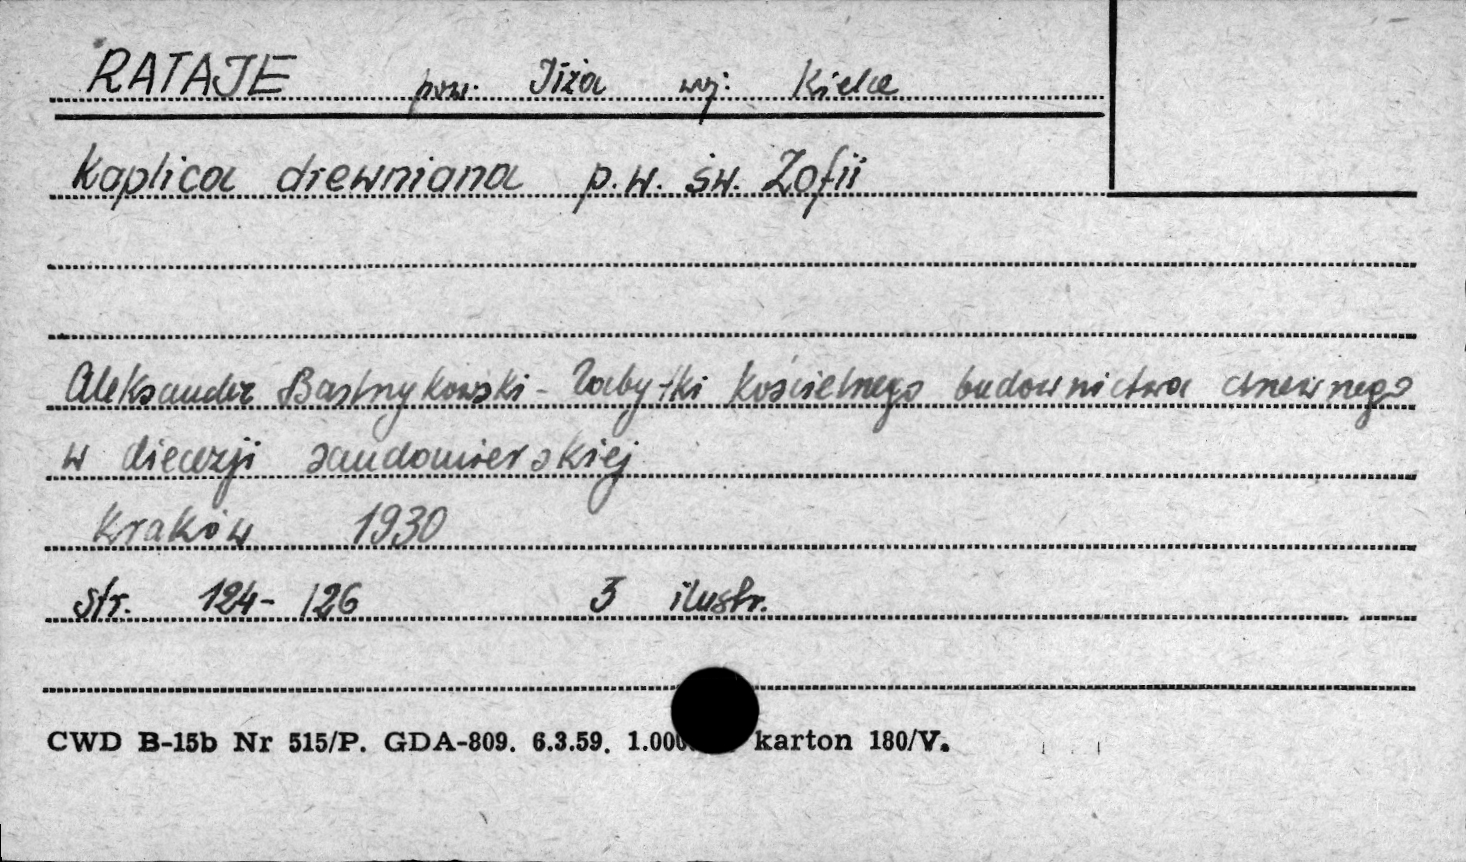 RATAJE pow. Iłża woj. Kielce
Kaplica drewniana p.w. św. Zofii
Aleksander Bastrzykowski - Zabytki kościelnego budownictwa drewnego
w diecezji sandomierskiej
Kraków 1930
str. 124-126 3 ilustr.
CWD B-15b Nr 515/P. GDA-809. 6.3.59. 1.000 karton 180/V.